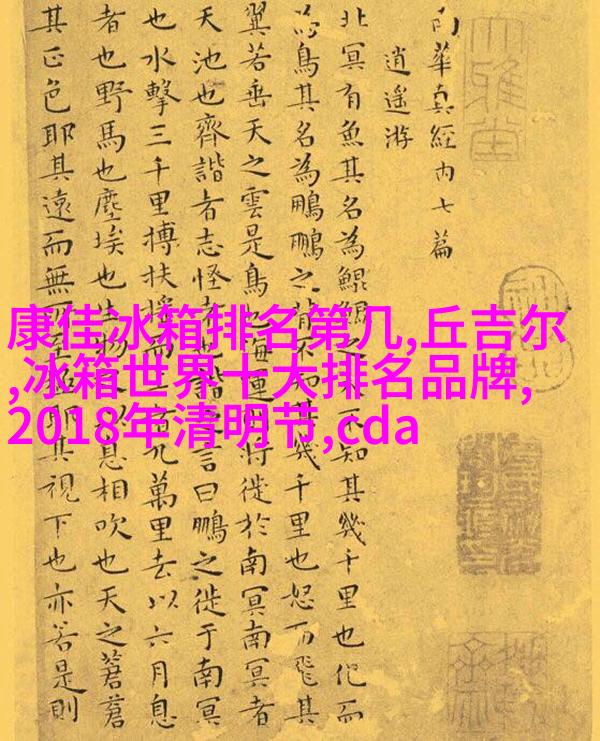 南華真經內七篇
逍遙游
北冥有魚其名為鯤鯤之大不知其幾千里也化而
為鳥其名為鵬鵬之背不知其幾千里也怒而飛其
翼若垂天之雲是鳥也海運則將徙於南冥南冥者
天池也齊諧者志怪者也諧之言曰鵬之徙于南冥
也水擊三千里搏扶搖而上者九萬里去以六月息
者也野馬也塵埃也生物之以息相吹也天之蒼蒼
其正色耶其遠而無所至極耶其視下也亦若是則
康佳冰箱排名第几,丘吉尔
,冰箱世界十大排名品牌,
2018年清明节,cda